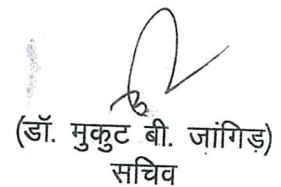 (डॉ. मुकुट बी. जांगिड़)
सचिव